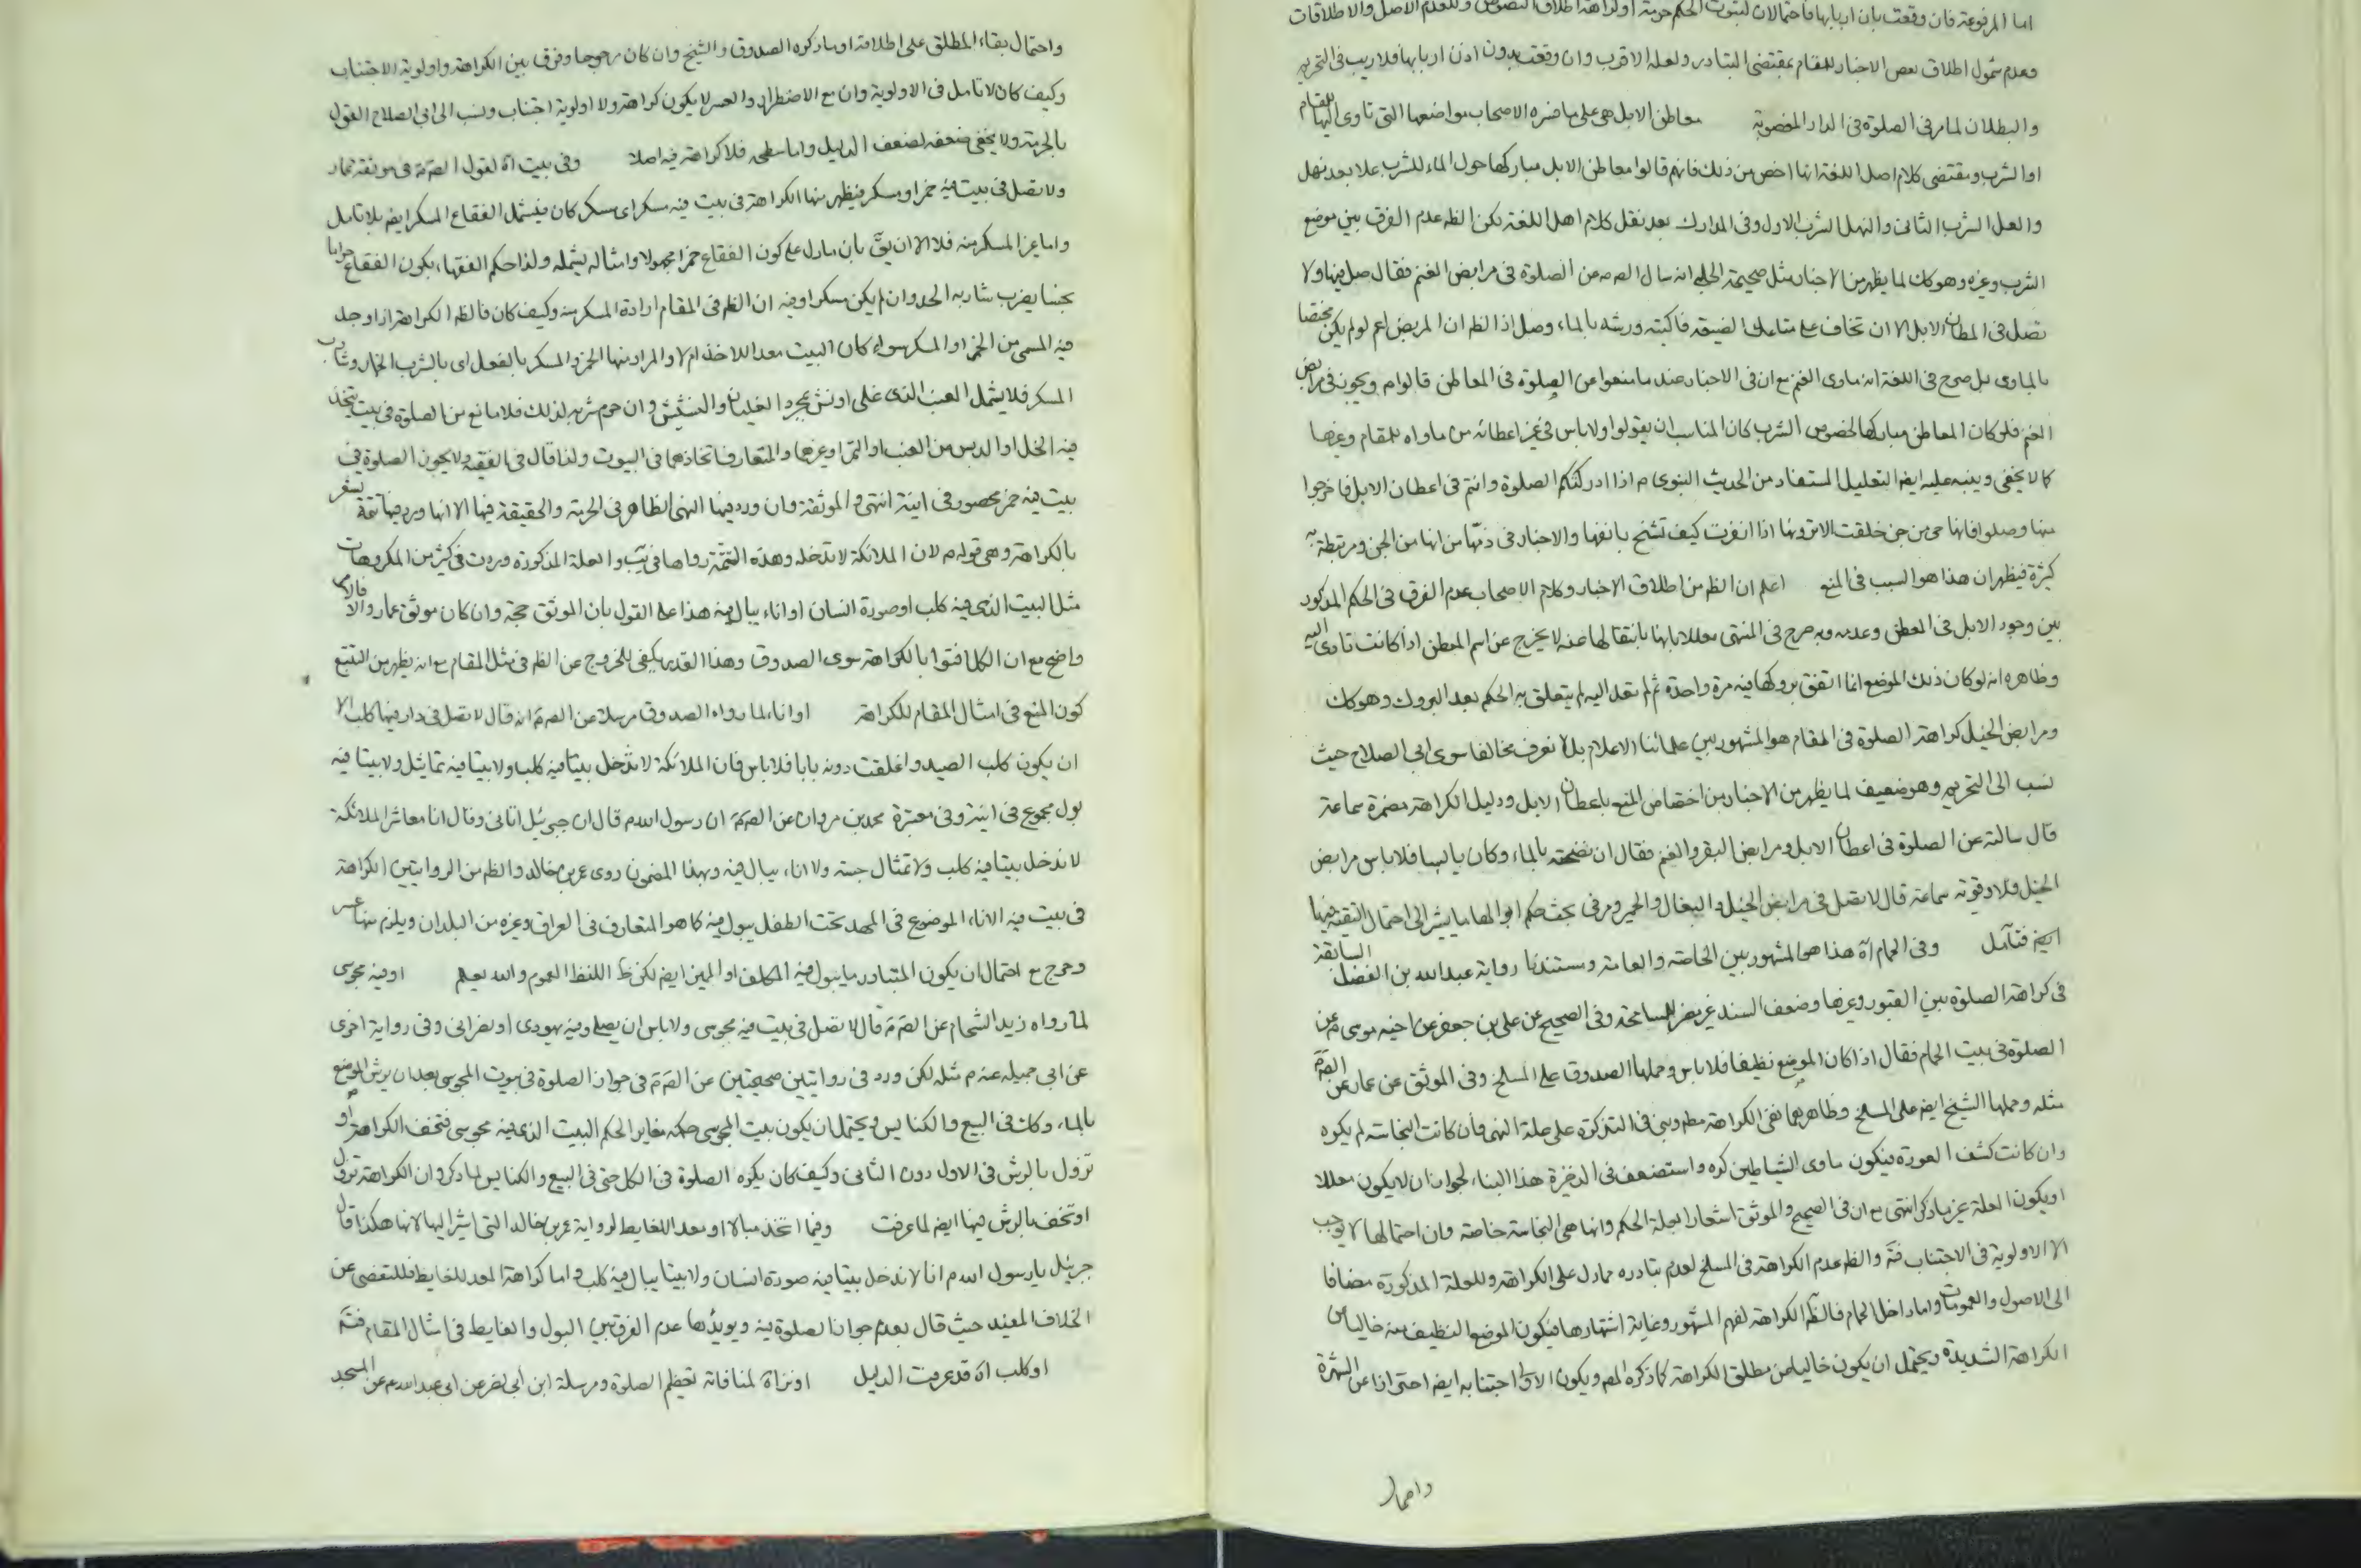 اما المرفوعة فان وقعت بان اربابها فاحتمالان لثبوت الحكم حرمة او كراهة اطلاق النصوص وللعدم الاصل والاطلاقات
وعدم شمول اطلاق بعض الاخبار للمقام بمقتضى التبادر ولعله الاقرب وان وقعت بدون اذن اربابها فلا ريب في التحريم
والبطلان لما مر في الصلوة في الدار المغصوبة معاطن الابل هي على ما ضره الاصحاب مواضعها التي تاوى اليها للمقام
او الشرب ومقتضى كلام اهل اللغة انها اخص من ذلك فانهم قالوا معاطن الابل مباركها حول الماء للشرب علا بعد نهل
والعل الشرب الثاني والنهل الشرب الاول وفي المدارك بعد نقل كلام اهل اللغة لكن الظ عدم الفرق بين موضع
الشرب وغيره وهو كك لما يظهر من الاخبار مثل صحيحة الحلبي انه سال الص عن الصلوة في مرابض الغنم فقال صل فيها ولا
تصل في اعطان الابل الا ان تخاف على متاعك الضيعة فاكنسه ورشه بالماء وصل اذا الظ ان المربض اعم لو لم يكن مختصا
بالماوى بل صرح في اللغة انه ماوى الغنم مع ان في الاخبار عند ما منعوا من الصلوة في المعاطن قالوا م ويجوز في مرابض
الغنم فلو كان المعاطن مباركها لخصوص الشرب كان المناسب ان يقولوا ولا باس في غير اعطانه من ماواه للمقام وغيرها
كما لا يخفى وينبه عليه ايض التعليل المستفاد من الحديث النبوي م اذا ادركتكم الصلوة وانتم في اعطان الابل فاخرجوا
منها وصلوا فانها جن من جن خلقت الا ترونها اذا انفرت كيف تشمخ بانفها والاخبار في ذمها من انها من الجن ومرتبطة به
كثيرة فيظهر ان هذا هو السبب في المنع اعلم ان الظ من اطلاق الاخبار وكلام الاصحاب عدم الفرق في الحكم المذكور
بين وجود الابل في المعطن وعدمه وبه صرح في المنتهى معللا بانها بانتقالها عنه لا يخرج عن اسم المعطن اذا كانت تاوى اليه
وظاهره انه لو كان ذلك الموضع انما اتفق بروكها فيه مرة واحدة ثم لم تعد اليه لم يتعلق به الحكم بعد البروك وهو كك
ومرابض الخيل كراهة الصلوة في المقام هو المشهور بين علمائنا الاعلام بل لا نعرف مخالفا سوى ابي الصلاح حيث
نسب الى التحريم وهو ضعيف لما يظهر من الاخبار من اختصاص المنع باعطان الابل ودليل الكراهة مضمرة سماعة
قال سالته عن الصلوة في اعطان الابل ومرابض البقر والغنم فقال ان نضحته بالماء وكان يابسا فلا باس مرابض
الخيل فلا وقوته سماعة قال لا تصل في مرابض الخيل والبغال والحمير ومر في بحث حكم ابوالها ما يشير الى احتمال التقية فيها
ايض فتامل وفي الحمام اه هذا هو المشهور بين الخاصة والعامة ومستندنا رواية عبد الله بن الفضل السابقة
في كراهة الصلوة بين القبور وغيرها وضعف السند غير مضر للمسامحة وفي الصحيح عن علي بن جعفر عن اخيه موسى م عن
الصلوة في بيت الحمام فقال اذا كان الموضع نظيفا فلا باس وحملها الصدوق على المسلخ وفي الموثق عن عمار عن الص م
مثله وحملها الشيخ ايض على المسلخ وظاهرهما نفي الكراهة مط وبنى في التذكرة على علة النهي فان كانت النجاسة لم يكره
وان كانت كشف العورة فيكون ماوى الشياطين كره واستضعف في الذخيرة هذا البناء لجواز ان لا يكون معللا
او يكون العلة غير ما ذكر انتهى مع ان في الصحيح والموثق اشعارا بعلة الحكم وانها هي النجاسة خاصة وان احتمالها لا يوجب
الا الاولوية في الاجتناب فت والظ عدم الكراهة في المسلخ لعدم تبادره مما دل على الكراهة وللعلة المذكورة مضافا
الى الاصول والعمومات واما داخل الحمام فالظ الكراهة لفهم المشهور وغاية اشتهارها فيكون الموضع النظيف منه خاليا من
الكراهة الشديدة ويحتمل ان يكون خاليا من مطلق الكراهة كما ذكره المص ويكون الاولى اجتنابه ايض احترازا عن الشهرة
واحتمال
واحتمال بقاء المطلق على اطلاقه او ما ذكره الصدوق والشيخ وان كان مرجوحا وفرق بين الكراهة واولوية الاجتناب
وكيف كان لا تامل في الاولوية وان مع الاضطرار والعسر لا يكون كراهة ولا اولوية اجتناب ونسب الى ابي الصلاح القول
بالحرمة ولا يخفى ضعفه لضعف الدليل واما سطحه فلا كراهة فيه اصلا وفي بيت اه لقول الص م في موثقة عمار
ولا تصل في بيت فيه خمر او مسكر فيظهر منها الكراهة في بيت فيه مسكر اى مسكر كان فيشمل الفقاع المسكر ايض بلا تامل
واما غير المسكر منه فلا الا ان يق بان ما دل على كون الفقاع خمرا مجهولا وامثاله يشمله ولذا حكم الفقهاء بكون الفقاع حراما
نجسا يضرب شاربه الحد وان لم يكن مسكرا وفيه ان الظ في المقام ارادة المسكر منه وكيف كان فالظ الكراهة اذا وجد
فيه المسمى من الخمر او المسكر سواء كان البيت معدا للاخذ ام لا والمراد منها الخمر والمسكر بالفعل اى بالشرب الخمار وشارب
المسكر فلا يشمل العنب الذي غلى او نش بمجرد الغليان والنشيش وان حرم شربه لذلك فلا مانع من الصلوة في بيت يتخذ
فيه الخل او الدبس من العنب او التمر او غيرها والمتعارف اتخاذهما في البيوت ولذا قال في الفقيه ولا يجوز الصلوة في
بيت فيه خمر محصور في انية انتهى والموثقة وان ورد فيها النهي الظاهر في الحرمة والحقيقة فيها الا انها ورد فيها تتمة تشعر
بالكراهة وهي قوله م لان الملائكة لا تدخله وهذه التتمة رواها في يب والعلة المذكورة وردت في كثير من المكروهات
مثل البيت الذي فيه كلب او صورة انسان او اناء يبال فيه هذا على القول بان الموثق حجة وان كان موثق عمار والا فالامر
واضح مع ان الكل افتوا بالكراهة سوى الصدوق وهذا القدر يكفي للخروج عن الظ في مثل المقام مع انه يظهر من التتبع
كون المنع في امثال المقام للكراهة او اناء لما رواه الصدوق مرسلا عن الص م انه قال لا تصل في دار فيها كلب الا
ان يكون كلب الصيد واغلقت دونه بابا فلا باس فان الملائكة لا تدخل بيتا فيه كلب ولا بيتا فيه تماثيل ولا بيتا فيه
بول مجموع في انية وفي معتبرة محمد بن مروان عن الص م ان رسول الله م قال ان جبرئيل اتاني وقال انا معاشر الملائكة
لا ندخل بيتا فيه كلب ولا تمثال جسد ولا اناء يبال فيه وبهذا المضمون روى عمرو بن خالد والظ من الروايتين الكراهة
في بيت فيه الاناء الموضوع في المهد تحت الطفل يبول فيه كما هو المتعارف في العراق وغيره من البلدان ويلزم منها عسر
وحرج مع احتمال ان يكون المتبادر ما يبول فيه المكلف او المميز ايض لكن ظ اللفظ العموم والله يعلم او فيه مجوسى
لما رواه زيد الشحام عن الص م قال لا تصل في بيت فيه مجوسى ولا باس ان يصلى وفيه يهودى او نصرانى وفي رواية اخرى
عن ابي جميله عنه م مثله لكن ورد في روايتين صحيحتين عن الص م في جواز الصلوة في بيوت المجوس بعد ان يرش الموضع
بالماء وكك في البيع والكنايس ويحتمل ان يكون بيت المجوسى حكمه مغاير الحكم البيت الذي فيه مجوسى فتخف الكراهة او
تزول بالرش في الاول دون الثاني وكيف كان يكره الصلوة في الكل حتى في البيع والكنايس لما ذكر وان الكراهة تزول
او تخف بالرش فيها ايض لما عرفت وفيما اتخذ مبالا او معدا للغايط لرواية عمرو بن خالد التي اشير اليها لانها هكذا قال
جبرئيل يا رسول الله م انا لا ندخل بيتا فيه صورة انسان ولا بيتا يبال فيه كلب واما كراهة المعد للغايط فللتفصى عن
الخلاف المفيد حيث قال بعدم جواز الصلوة فيه ويويدها عدم الفرق بين البول والغايط في امثال المقام فت
او كلب اه قد عرفت الدليل او نزاة لمنافاته تعظيم الصلوة ومرسلة ابن ابي نصر عن ابي عبد الله م عن المسجد